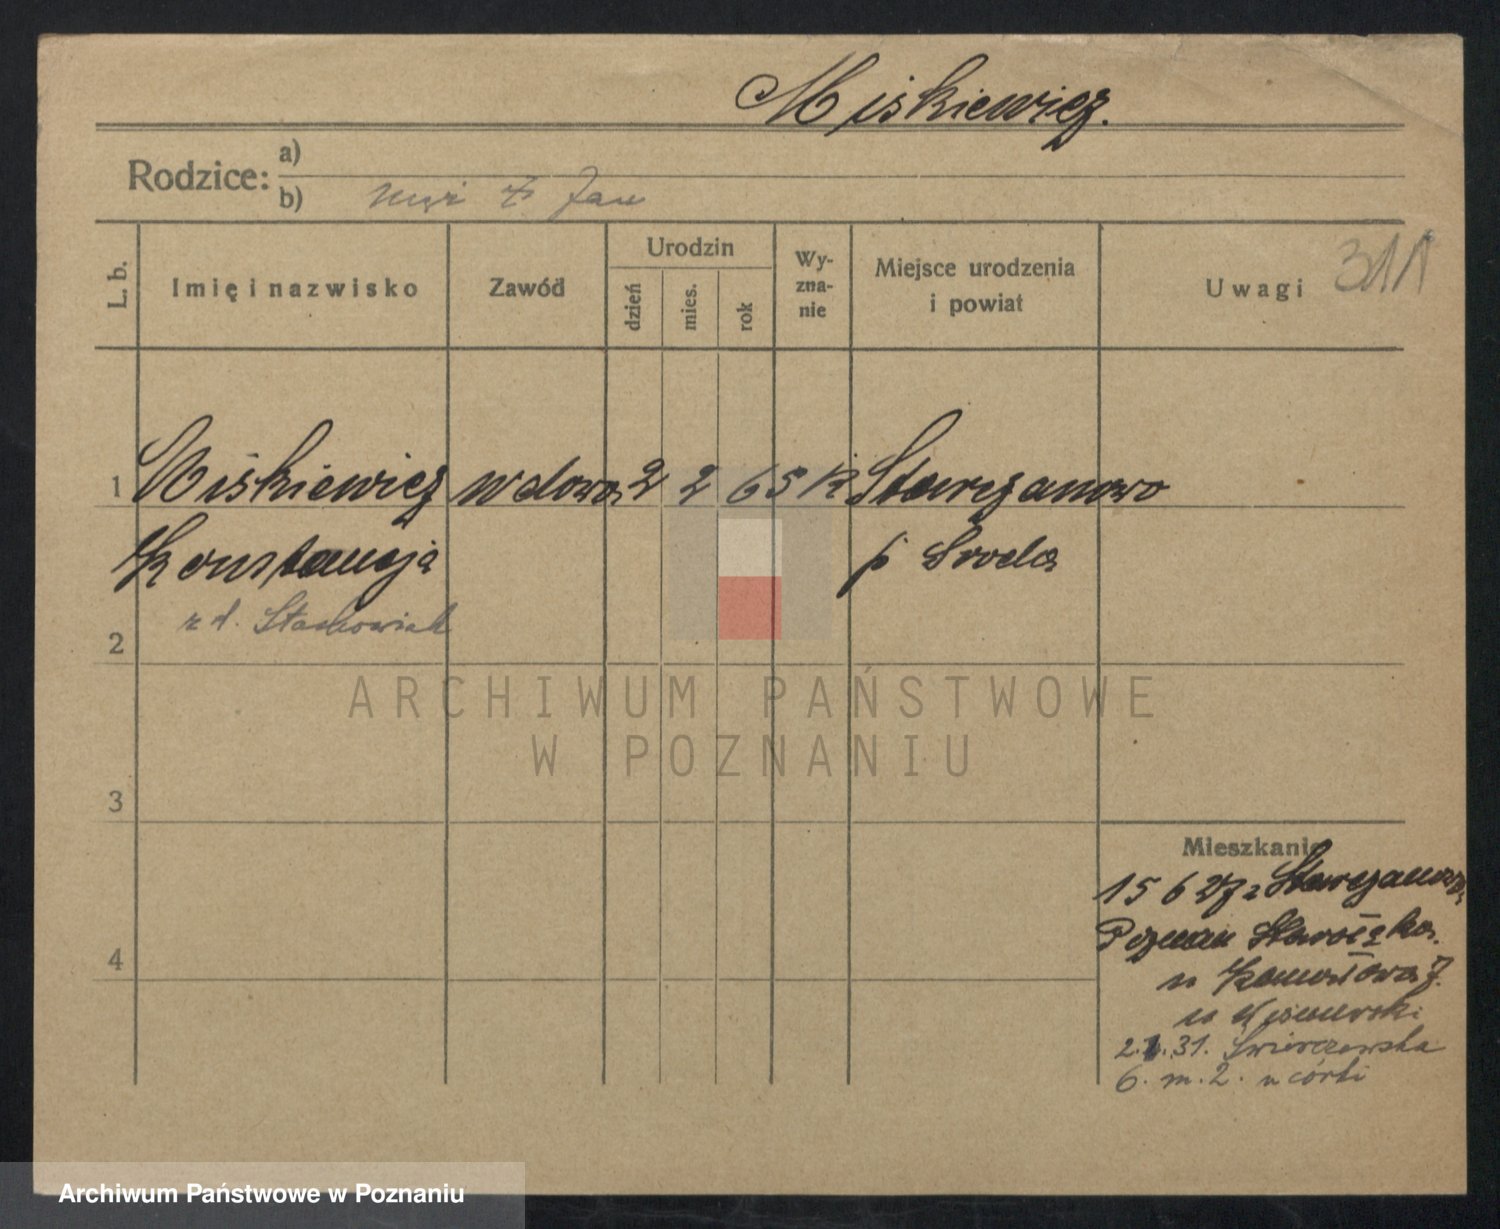 Miśkiewicz.
Rodzice: a)
b) mąż † Jan
L. b. Imię i nazwisko Zawód Urodzin dzień mies. rok Wy-zna-nie Miejsce urodzenia i powiat Uwagi 311
1 Miśkiewicz wdowa 2 2 65 k Starczanowo
Konstancja p Środa
zd. Stachowiak
2
ARCHIWUM PAŃSTWOWE
W POZNANIU
3
Mieszkanie
15 6 27 z Starczanowa
Poznań
4
u
u
2. 31. Świerczewska
6. m. 2. u córki
Archiwum Państwowe w Poznaniu